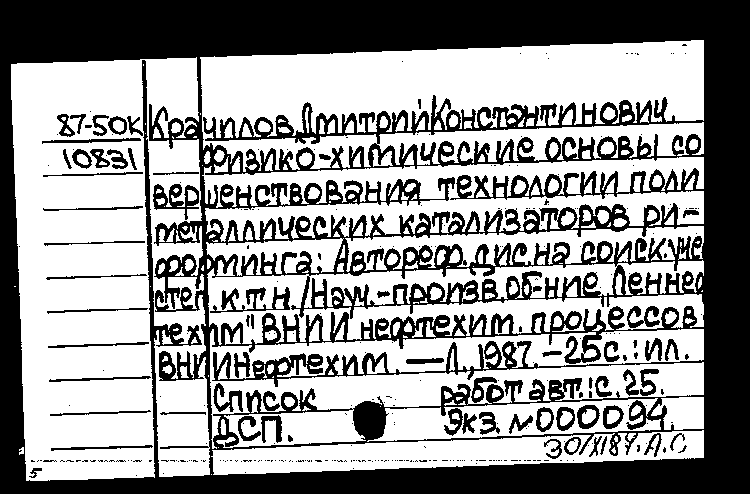 87-50К Крачилов, Дмитрий Константинович.
10831 Физико-химические основы со
вершенствования технологии поли
металлических катализаторов ри-
форминга: Автореф. дис. на соиск. уче
степ. к.т.н. / Науч.-произв. об-ние "Леннеф
техим", ВНИИ нефтехим. процессов
ВНИИНефтехим. — Л., 1987. - 25 с.: ил.
Список работ авт.: с. 25.
ДСП. Экз. №000094.
30/XI 87. А.С
5